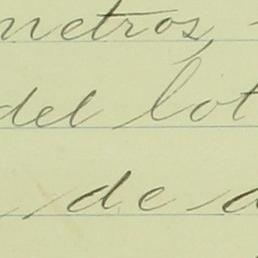 metros,
del lot
de a